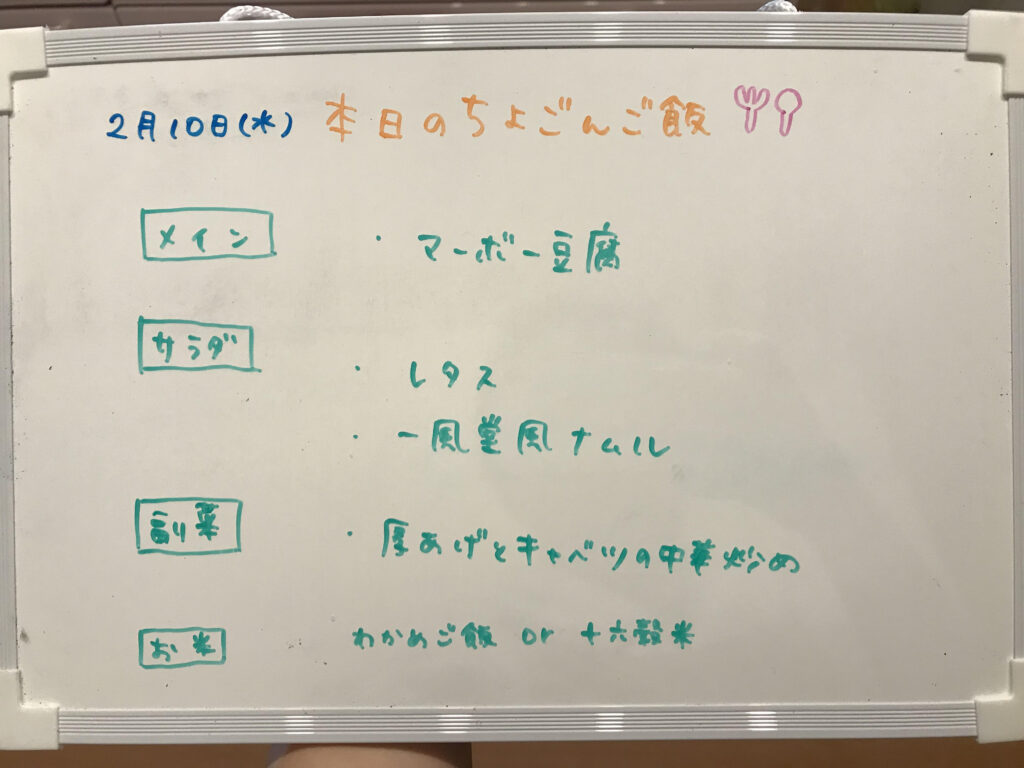 2月10日(水) 本日のちよごんご飯
メイン ・マーボー豆腐
サラダ ・レタス
・一風堂風ナムル
副菜 ・厚あげとキャベツの中華炒め
お米 わかめご飯 or 十六穀米